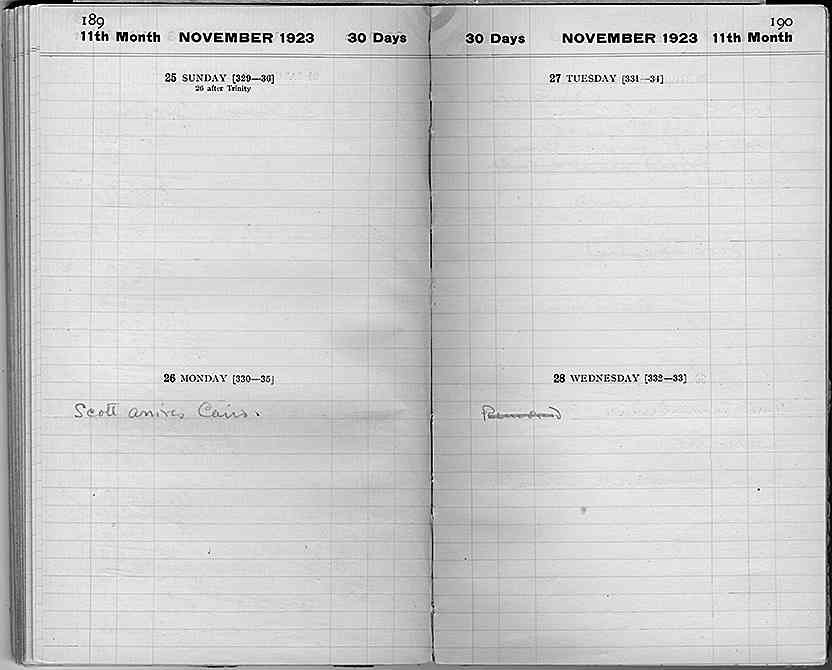 189
11th Month NOVEMBER 1923 30 Days
25 SUNDAY [329—36]
26 after Trinity
26 MONDAY [330—35]
Scott arrives Cairo.
190
30 Days NOVEMBER 1923 11th Month
27 TUESDAY [331—34]
28 WEDNESDAY [332—33]